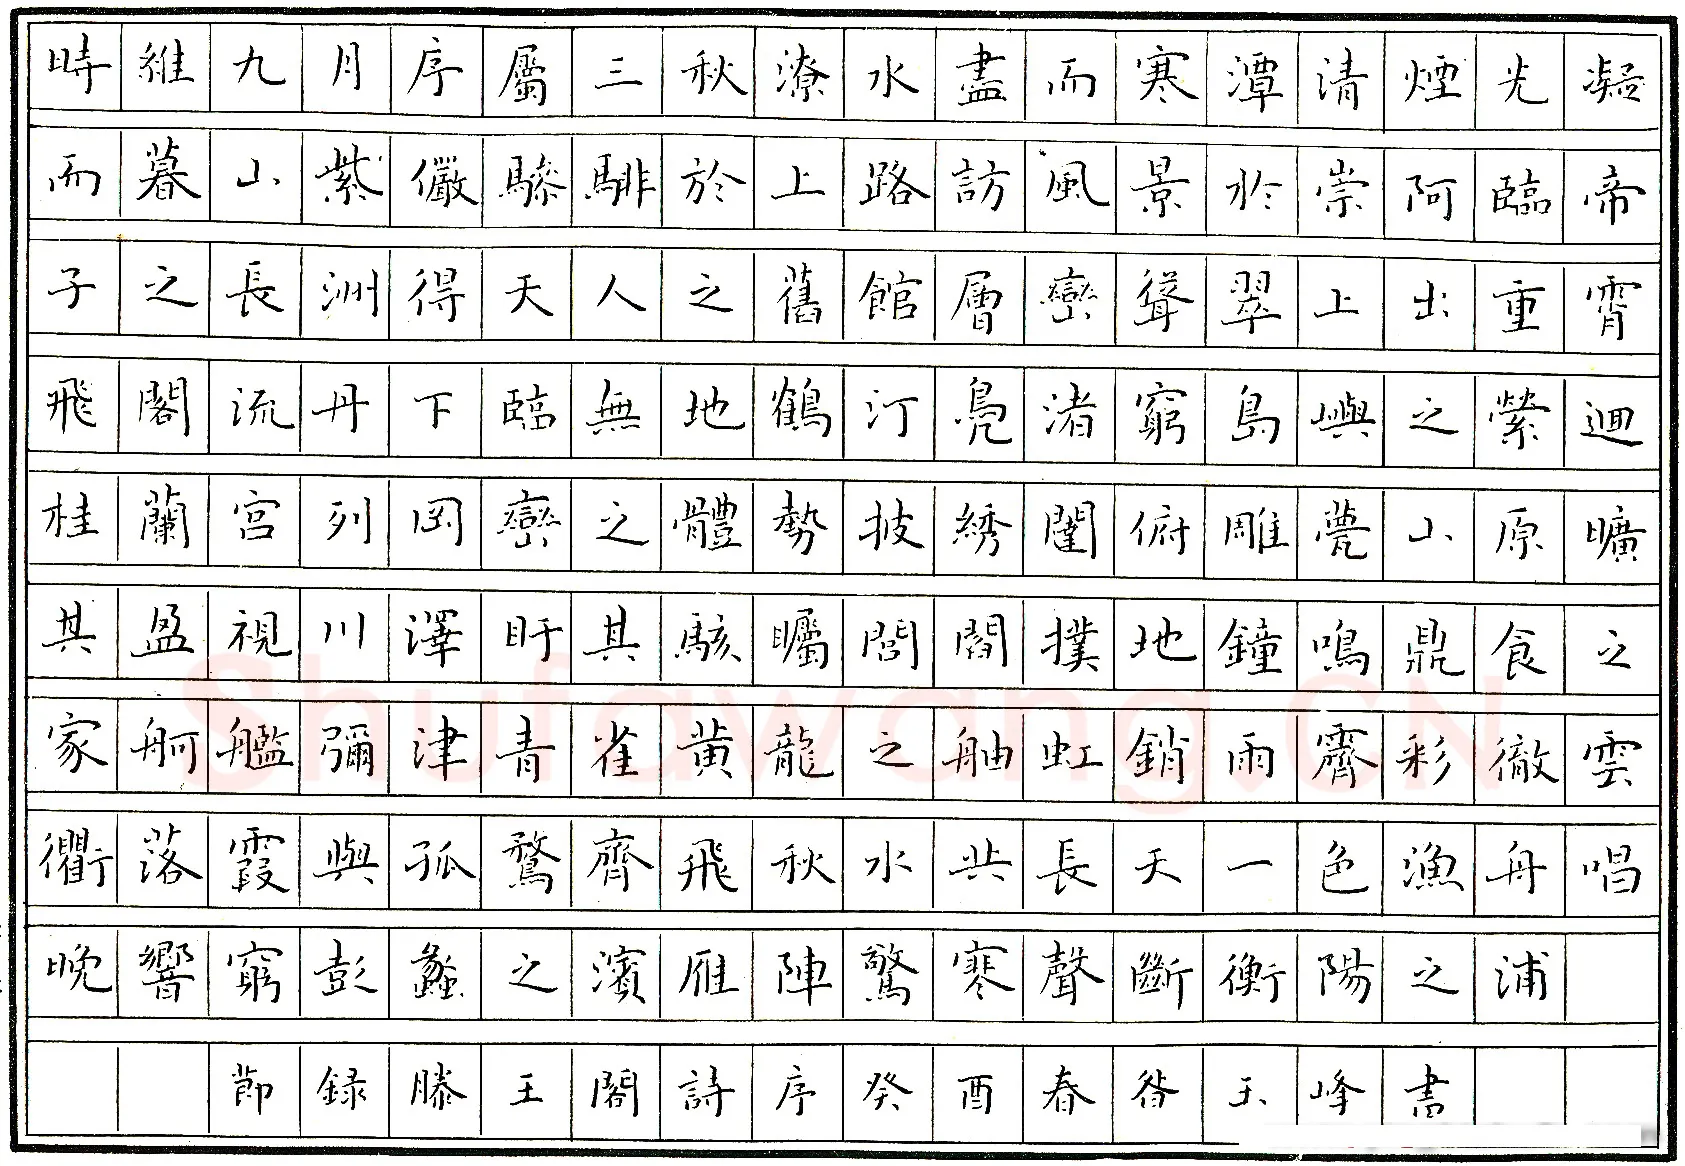 時維九月序屬三秋潦水盡而寒潭清煙光凝
而暮山紫儼驂騑於上路訪風景於崇阿臨帝
子之長洲得天人之舊館層巒聳翠上出重霄
飛閣流丹下臨無地鶴汀鳧渚窮島嶼之縈迴
桂蘭宮列岡巒之體勢披綉闥俯雕甍山原曠
其盈視川澤盱其駭矚閭閻撲地鐘鳴鼎食之
家舸艦彌津青雀黃龍之舳虹銷雨霽彩徹雲
衢落霞與孤鶩齊飛秋水共長天一色漁舟唱
晚響窮彭蠡之濱雁陣驚寒聲斷衡陽之浦
節録滕王閣詩序癸酉春昝玉峰書
Shufawang.CN